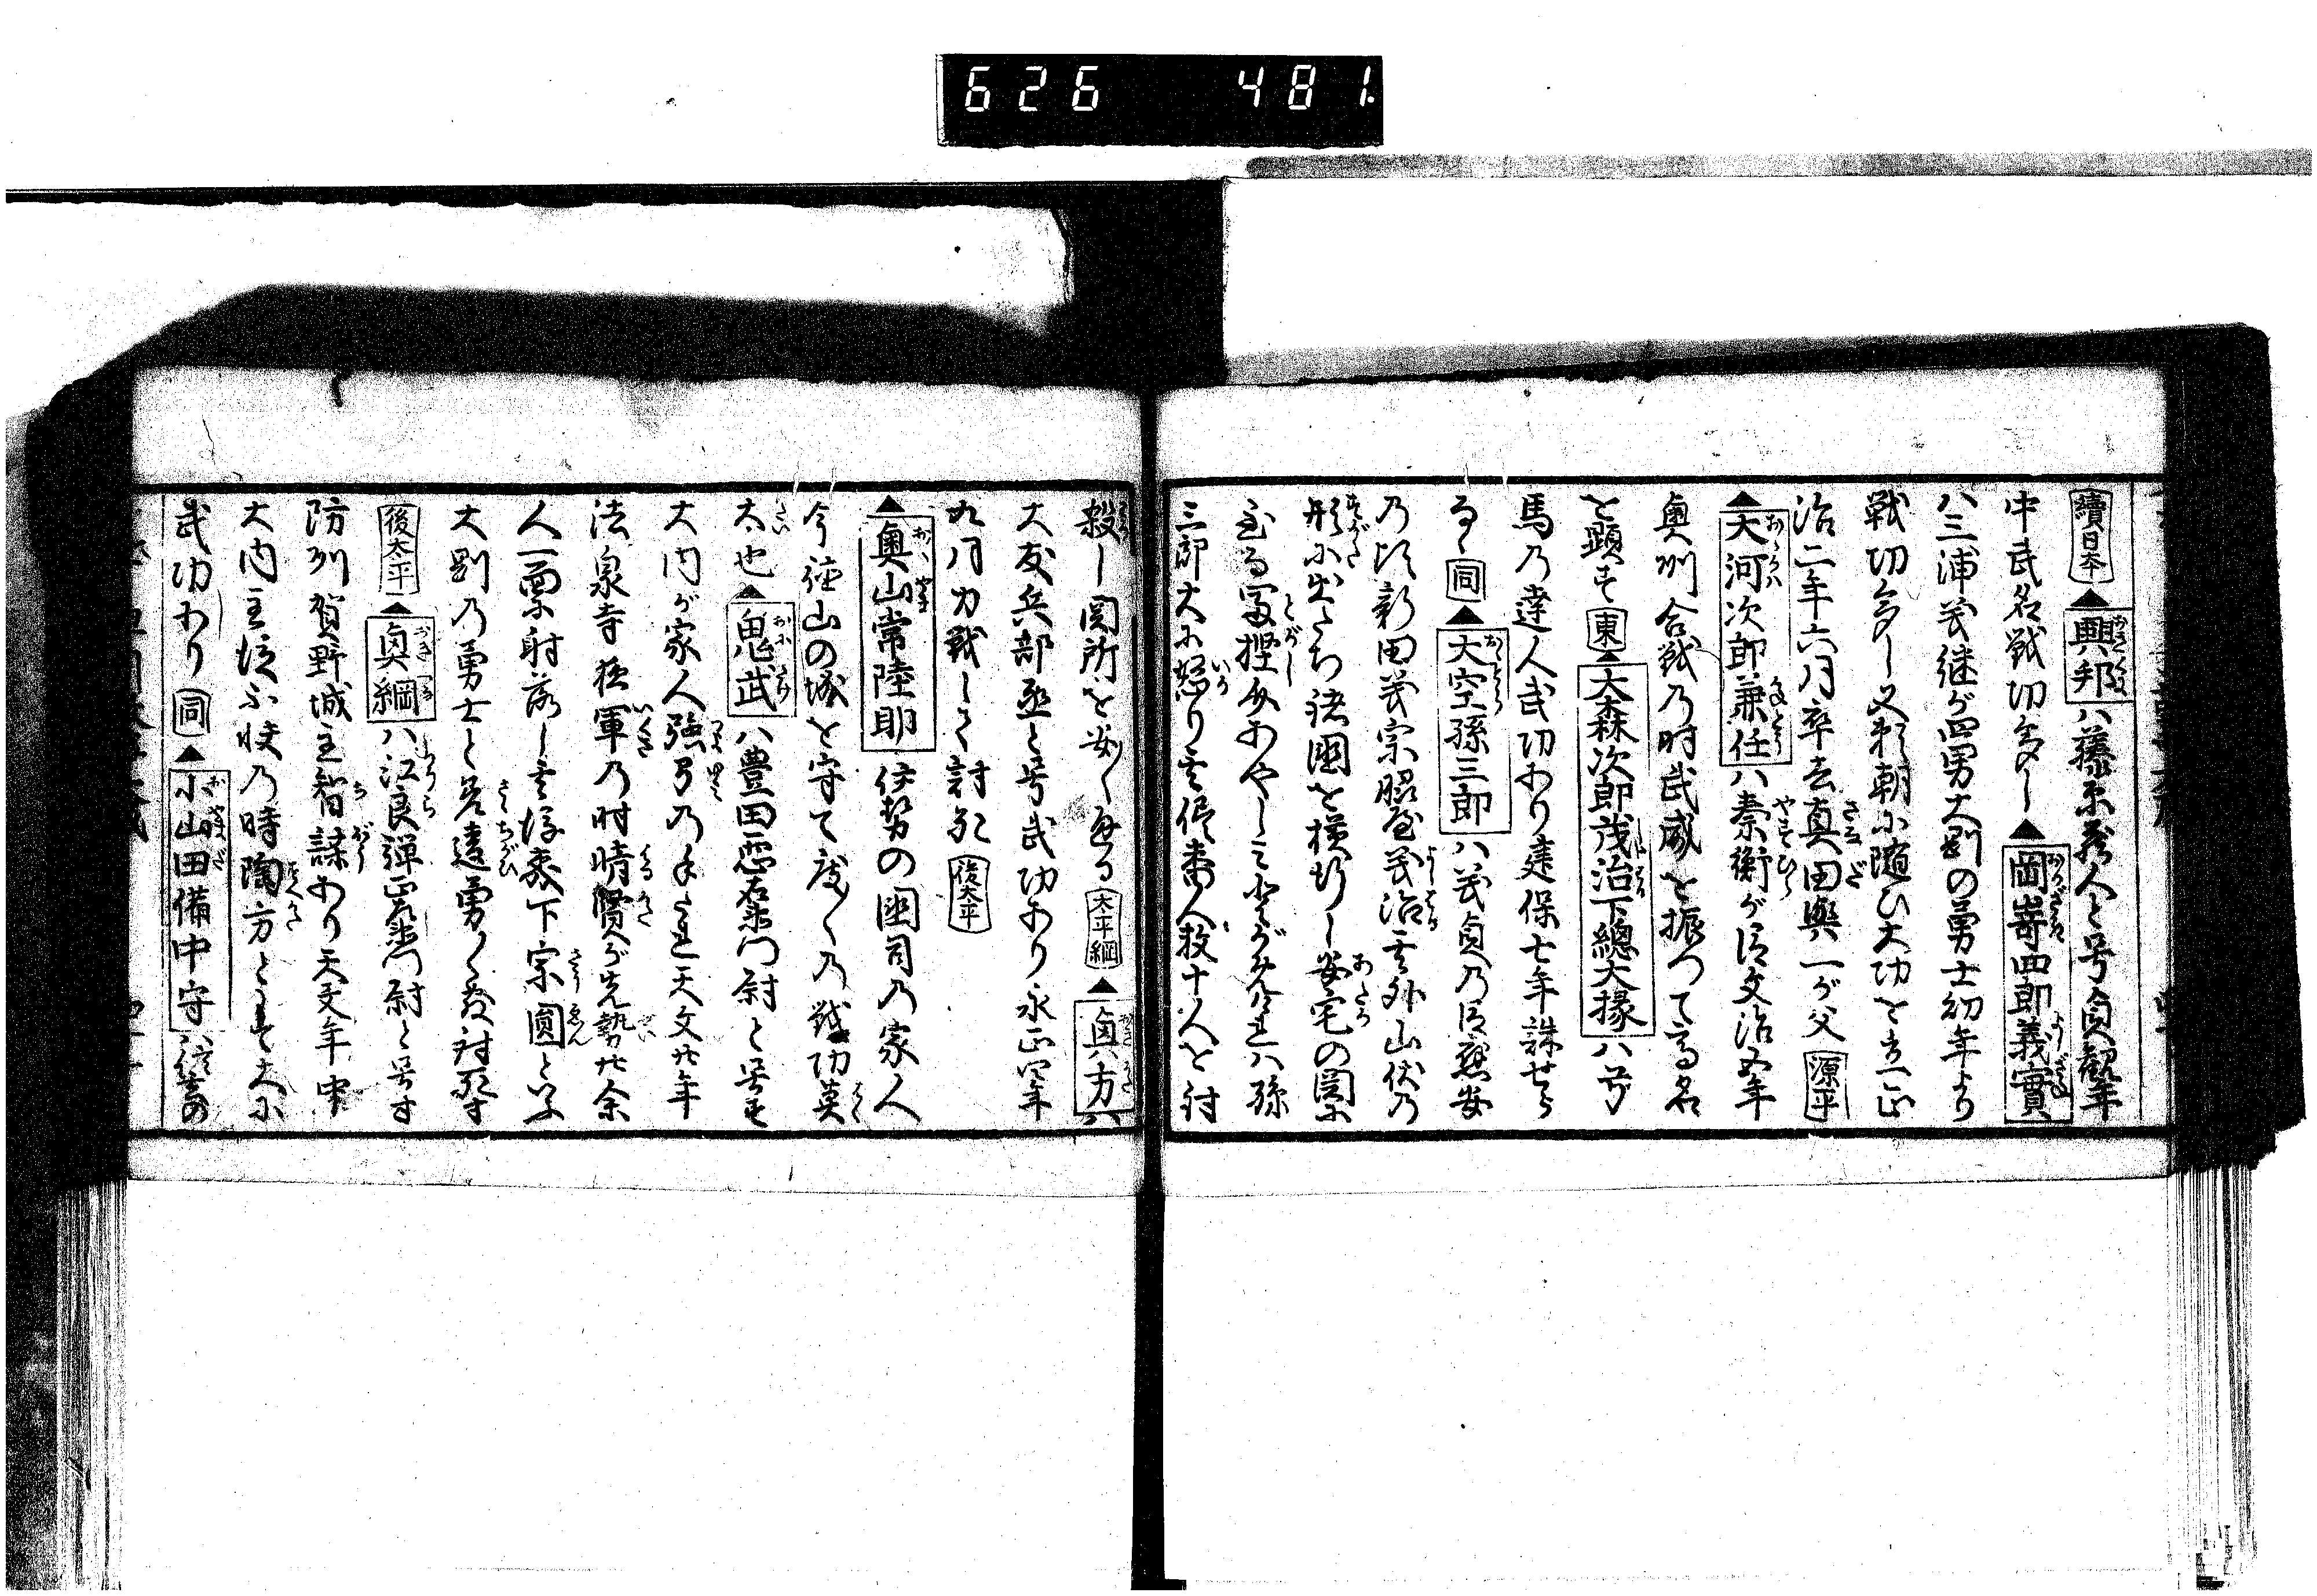 626 481.
續日本▲興邦ハ藤原蔵人と号貞観年
中武名戦功多し▲岡嵜四郎義實
ハ三浦義継が四男大剛の勇士初年より
戦功多し又頼朝に随ひ大功を立正
治二年六月卒去真田與一が父 源平
▲大河次郎兼任ハ泰衡が臣文治五年
奥州合戦乃时武威を振つて高名
を顕す 東▲大森次郎茂治下總大掾ハ弓
馬乃達人武功あり建保七年誅せら
る 同▲大空孫三郎ハ義貞乃臣應安
乃頃新田義宗脇屋義治と外山伏乃
形に出たち諸國を横行し安宅の関に
至る富樫あやしみとがめければ孫
三郎大に怒り番人数十人を討
殺し関所を破る 太平綱▲奥方ハ
大友兵部丞と号武功あり永正四年
九月力戦して討死 後太平
▲奥山常陸助 伊勢の國司乃家人
今徳山の城を守て度々乃戦功莫
太也▲鬼武ハ豊田悪右衛門尉と号す
大内が家人強弓乃手たれ天文廿年
法泉寺夜軍乃时晴賢が先勢廿余
人一面に射落し下宗圓といふ
大剛乃勇士と差違勇々敷討死す
後太平▲奥綱ハ江良弾正左衛門尉と号す
防州賀野城主智謀あり天文年中
大内主従不快乃時陶方として大に
武功あり 同▲小山田備中守ハ信玄の